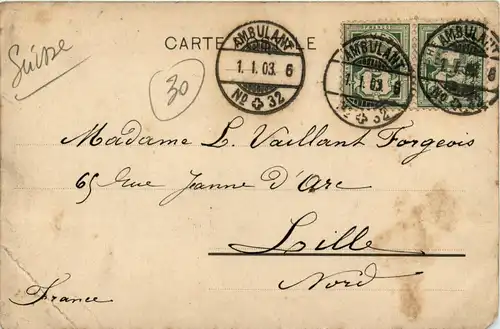 Suisse
CARTE
30
AMBULANT
1. I. 03. 6
No 32
AMBULANT
1. I. 03. 6
No 32
AMBULANT
No 32
Madame L. Vaillant Forgeois
65 Rue Jeanne d'Arc
Lille
Nord
France